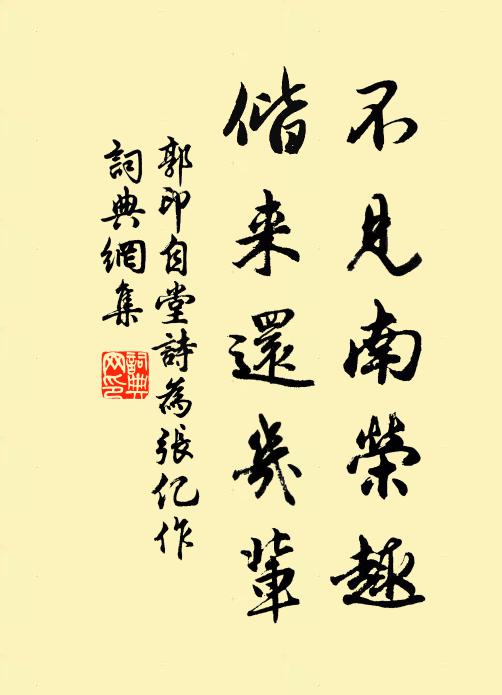 不見南榮趎
偕来還幾輩
郭印自堂詩為張亿作
詞典網集
詞典
网印